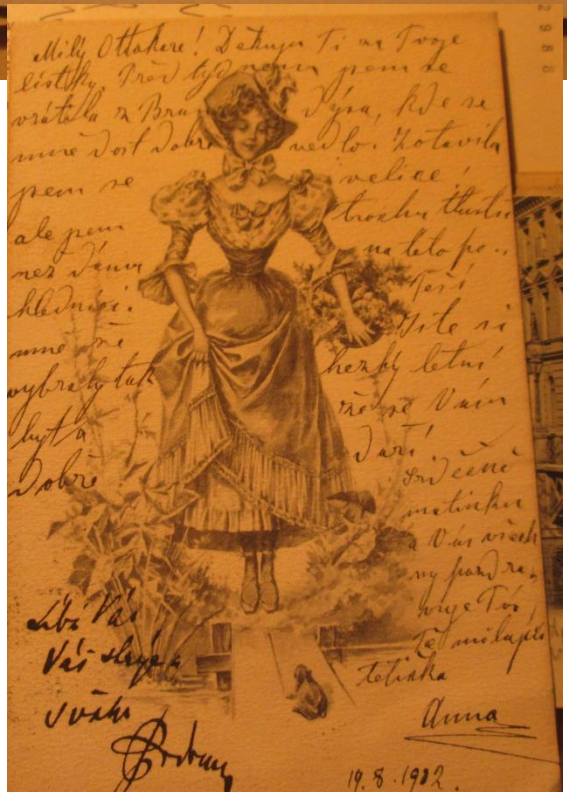 Milý Ottokare! Děkuju Ti za Tvoje
lístky. Před týdnem jsem se
vrátila z kde se
mně dost dobře vedlo. Zotavila
jsem se velice,
ale jsem trochu tlustší
než dáma na této po-
hlednici. Těší
mne že Jste si
vybrali tak hezký letní
byt a že se Vám
dobře daří.
Srdečně
matinku
a Vás všech
ny pozdra-
vuje Tvá
Tě milující
tetinka
Anna
Líbá Vás
Váš strýc a
19.8.1902.